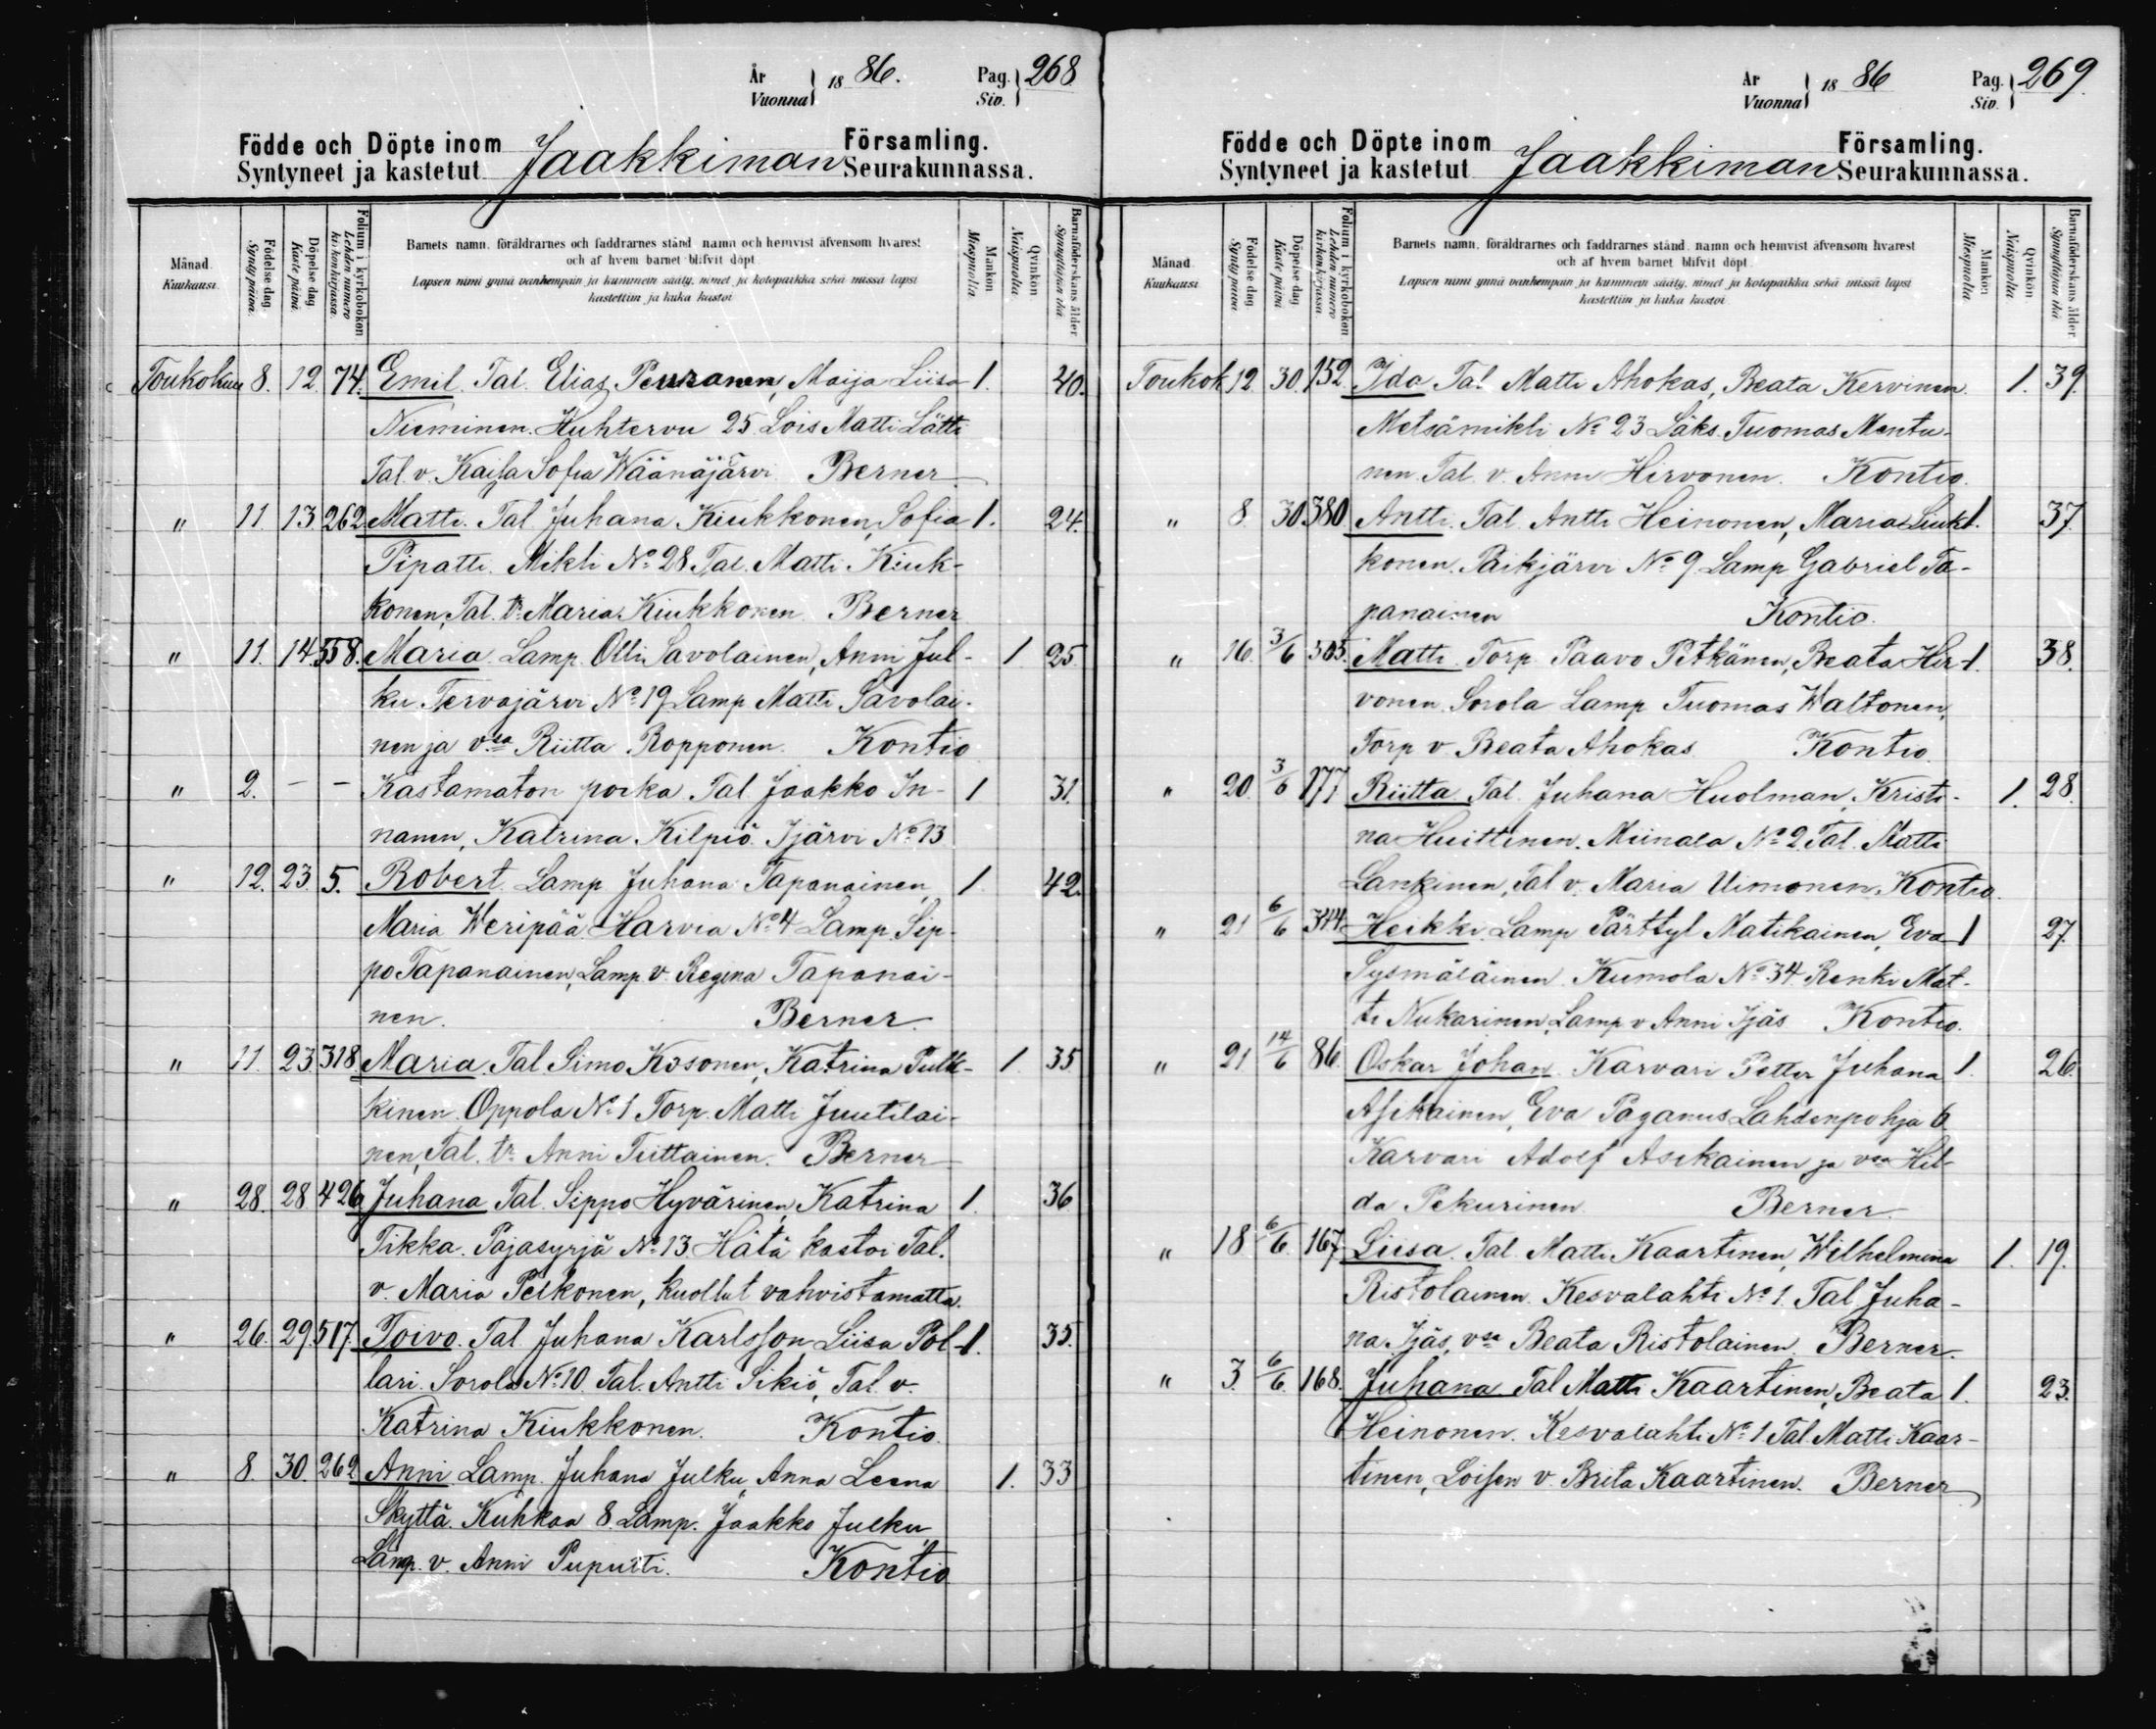 År
Vuonna } 18 86. Pag.
Siv. } 268
Födde och Döpte inom Jaakkiman Församling.
Syntyneet ja kastetut Seurakunnassa.
Månad. Kuukausi. Födelse dag. Synty päivä. Döpelse dag. Kaste päivä. Folium i kyrkoboken Lehden numero kirkonkirjassa. Barnets namn, föräldrarnes och faddrarnes stånd, namn och hemvist äfvensom hvarest Mankön Miespuolia. Qvinkön Naispuolia. Barnaföderskans ålder Synnyttäjän ikä
och af hvem barnet blifvit döpt.
Lapsen nimi ynnä vanhempain ja kummein sääty, nimet ja kotopaikka sekä missä lapsi
kastettiin ja kuka kastoi.
Toukokuu 8. 12. 74. Emil. Tal. Elias Peuranen, Maija Liisa 1. 40.
Nieminen. Huhtervu 25 Lois Matti Lätti
Tal. v. Kaisa Sofia Wäänäjärvi Berner
" 11. 13. 262 Matti. Tal Juhana Kiukkonen, Sofia 1. 24.
Pipatti. Mikli No 28 Tal. Matti Kiuk-
konen, Tal. tr Maria Kiukkonen Berner
" 11. 14. 558. Maria. Lamp. Olli Savolainen, Anni Jul- 1 25
ku. Tervajärvi No 19 Lamp Matti Savolai-
nen ja vsa Riitta Ropponen. Kontio
" 2. – – Kastamaton poika Tal Jaakko In- 1 31.
nanen, Katrina Kilpiö. Ijärvi No 13
" 12. 23. 5. Robert. Lamp Juhana Tapanainen, 1 42.
Maria Weripää. Harvia No 4 Lamp. Sip-
po Tapanainen, Lamp v. Regina Tapanai-
nen. Berner.
" 11. 23. 318 Maria. Tal Simo Kosonen, Katrina Pulk- 1. 35
kinen. Oppola No 1 Torp. Matti Juutilai-
nen, Tal. tr Anni Tiittainen. Berner
" 28. 28 426 Juhana Tal. Sippo Hyvärinen, Katrina 1. 36
Tikka. Pajasyrjä No 13 Hätä kastoi Tal.
v. Maria Pelkonen, kuollut vahvistamatta.
" 26. 29 517. Toivo. Tal Juhana Karlsson, Liisa Pöl- 1. 35.
lari. Sorola No 10. Tal. Antti Sikiö, Tal. v.
Katrina Kiukkonen. Kontio.
" 8. 30. 262 Anni Lamp. Juhana Julku, Anna Leena 1. 33
Skyttä. Kuhkaa 8. Lamp. Jaakko Julku,
Lamp. v. Anni Puputti. Kontio
År
Vuonna } 18 86 Pag.
Siv. } 269.
Födde och Döpte inom Jaakkiman Församling.
Syntyneet ja kastetut Seurakunnassa.
Månad. Kuukausi. Födelse dag. Synty päivä. Döpelse dag. Kaste päivä. Folium i kyrkoboken Lehden numero kirkonkirjassa. Barnets namn, föräldrarnes och faddrarnes stånd, namn och hemvist äfvensom hvarest Mankön Miespuolia. Qvinkön Naispuolia. Barnaföderskans ålder Synnyttäjän ikä
och af hvem barnet blifvit döpt.
Lapsen nimi ynnä vanhempain ja kummein sääty, nimet ja kotopaikka sekä missä lapsi
kastettiin ja kuka kastoi.
Toukok. 12. 30. 152. Ida Tal. Matti Ahokas, Beata Kervinen 1. 39.
Metsämikli No 23 Läks. Tuomas Mantu-
nen Tal. v. Anni Hirvonen. Kontio.
" 8. 30 380 Antti. Tal. Antti Heinonen, Maria Liuk- 1. 37.
konen. Paikjärvi No 9 Lamp Gabriel Ta-
panainen Kontio.
" 16. 3/6 505. Matti. Torp Paavo Pitkänen, Beata Hir- 1. 38.
vonen. Sorola Lamp Tuomas Waltonen,
Torp v Beata Ahokas Kontio
" 20. 3/6 177 Riitta Tal. Juhana Huolman, Kristi- 1. 28.
na Huittinen. Miinala No 2. Tal. Matti
Lankinen, Tal v. Maria Uimonen. Kontio.
" 21 6/6 344. Heikki. Lamp Pärttyl Matikainen, Eva 1 27.
Sysmäläinen Kumola No 34 Renki Mat-
ti Nukarinen, Lamp v Anni Ijäs Kontio.
" 21 14/6 86. Oskar Johan Karvari Petter Juhana 1. 26.
Asikainen, Eva Paganus Lahdenpohja 6
Karvari Adolf Asikainen ja vsa Hil-
da Pekurinen. Berner.
" 18 6/6. 167 Liisa Tal. Matti Kaartinen, Wilhelmina 1. 19.
Ristolainen. Kesvalahti No 1. Tal Juha-
na Ijäs, vsa Beata Ristolainen. Berner.
" 3. 6/6. 168. Juhana Tal Matti Kaartinen, Beata 1. 23.
Heinonen. Kesvalahti No 1 Tal. Matti Kaar-
tinen, Loisen v. Brita Kaartinen. Berner